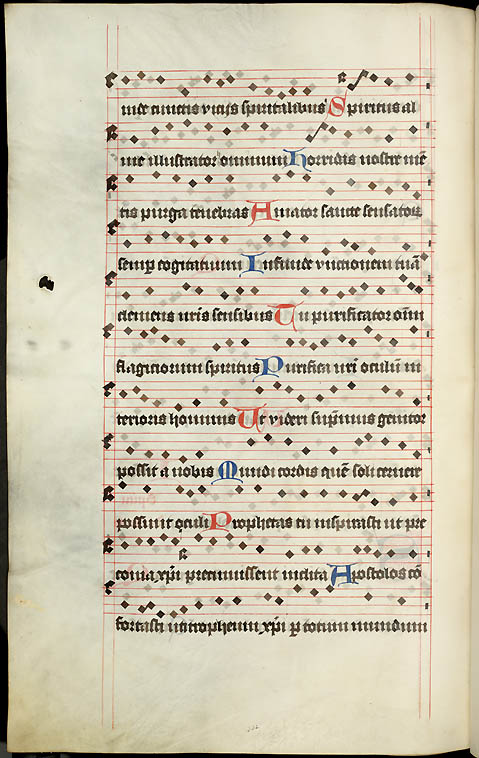 nidz cunctis vicijs spiritalibus Spiritus al
me illustrator ominum Horridas nostre mē
tis purga tenebras Amator sancte sensatoꝝ
semp cogitatuum Infunde vnctionem tuā
clemens nris sensibus Tu purificator oīm
flagiciorum spiritus Purifica nri oculum in
terioris hominis Ut videri supmus genitor
possit a nobis Mundi cordis quē soli cernere
possunt oculi Prophetas tu inspirasti ut pre
conia xpi precinuissent inclita Apostolos cō
fortasti uti tropheum xpi p totum mundum